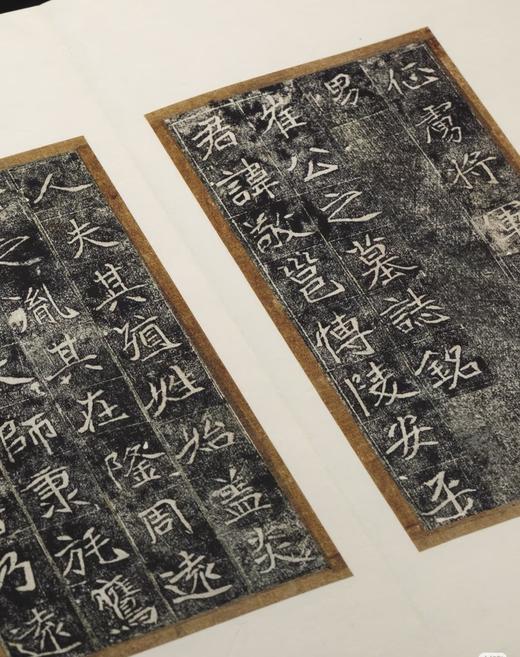 征虜将軍
男
崔公之墓誌銘
君諱敬邕博陵安平
人夫其殖姓始盖炎
之胤其在隆周遠
師秉旄鷹
乃遠